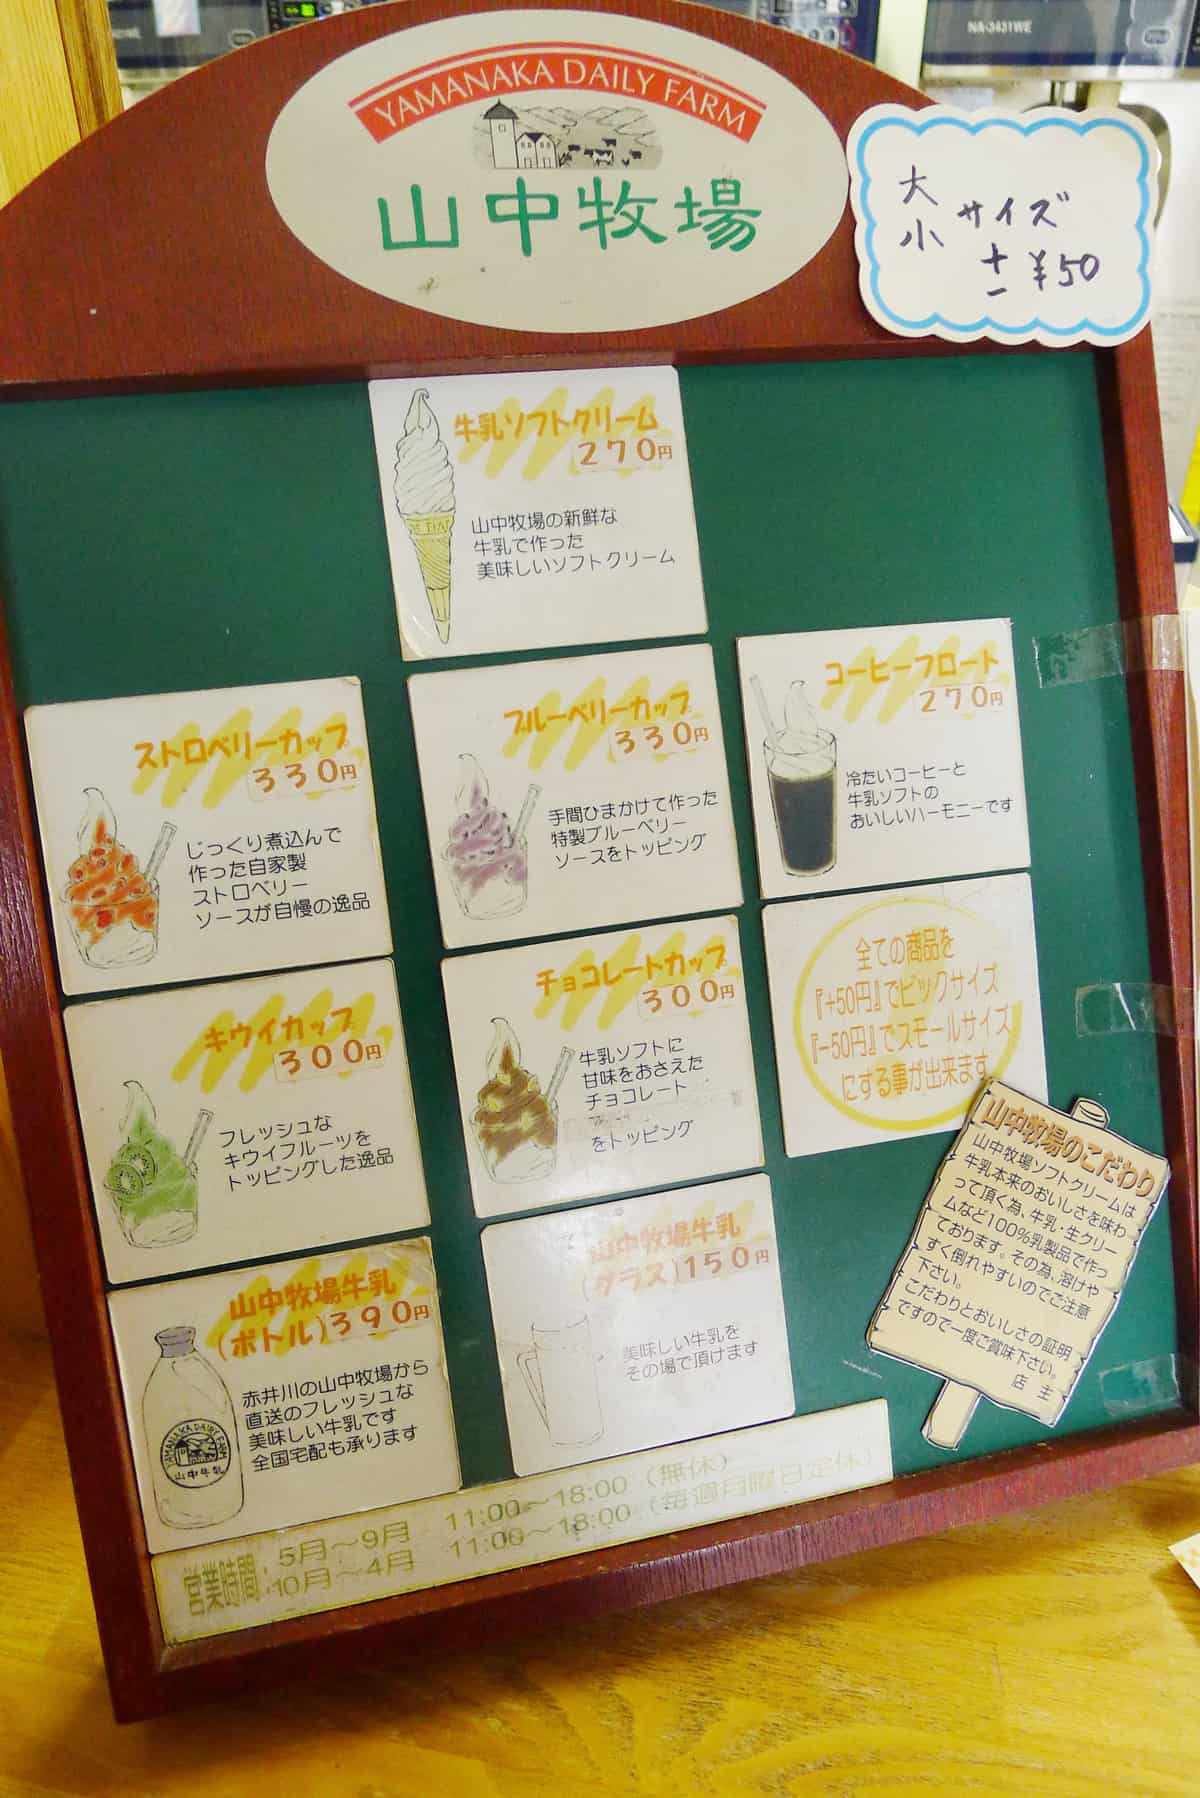 NA-3431WE
YAMANAKA DAILY FARM
山中牧場
大
小 サイズ
±¥50
牛乳ソフトクリーム
270円
山中牧場の新鮮な
牛乳で作った
美味しいソフトクリーム
ストロベリーカップ
330円
じっくり煮込んで
作った自家製
ストロベリー
ソースが自慢の逸品
ブルーベリーカップ
330円
手間ひまかけて作った
特製ブルーベリー
ソースをトッピング
コーヒーフロート
270円
冷たいコーヒーと
牛乳ソフトの
おいしいハーモニーです
キウイカップ
300円
フレッシュな
キウイフルーツを
トッピングした逸品
チョコレートカップ
300円
牛乳ソフトに
甘味をおさえた
チョコレート
をトッピング
全ての商品を
『+50円』でビックサイズ
『-50円』でスモールサイズ
にする事が出来ます
山中牧場牛乳
(ボトル)390円
赤井川の山中牧場から
直送のフレッシュな
美味しい牛乳です
全国宅配も承ります
YAMANAKA DAIRY FARM
山中牛乳
山中牧場牛乳
(グラス)150円
美味しい牛乳を
その場で頂けます
山中牧場のこだわり
山中牧場ソフトクリームは
牛乳本来のおいしさを味わ
って頂く為、牛乳・生クリー
ムなど100%乳製品で作っ
ております。その為、溶けや
すく倒れやすいのでご注意
下さい。
こだわりとおいしさの証明
ですので一度ご賞味下さい。
店 主
営業時間: 5月～9月 11:00～18:00 (無休)
10月～4月 11:00～18:00 (毎週月曜日定休)